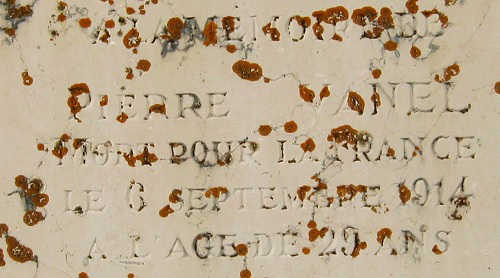 A LA MEMOIRE DE
PIERRE
MORT POUR LA FRANCE
LE 6 SEPTEMBRE 1914
A L'AGE DE 29 ANS